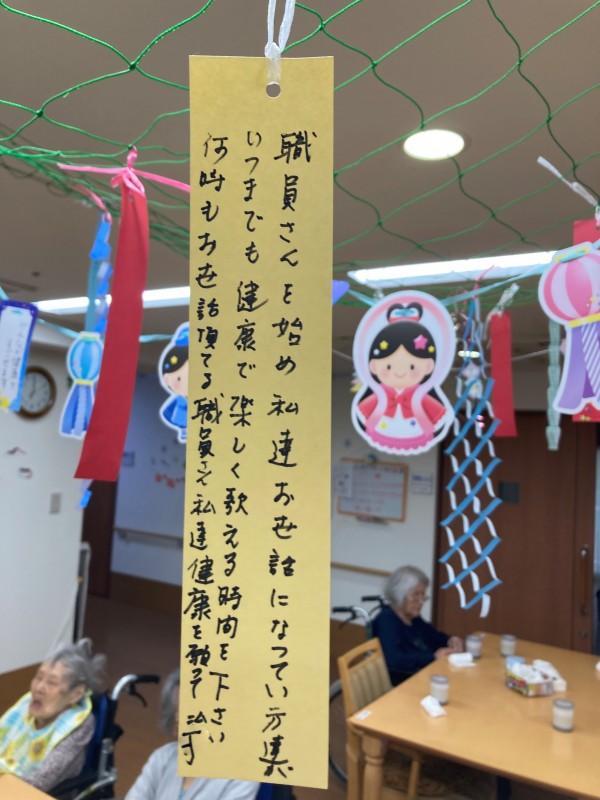 職員さんを始め私達お世話になってい方達
いつまでも健康で楽しく歌える時間を下さい
何時もお世話頂てる職員さん私達健康を願って